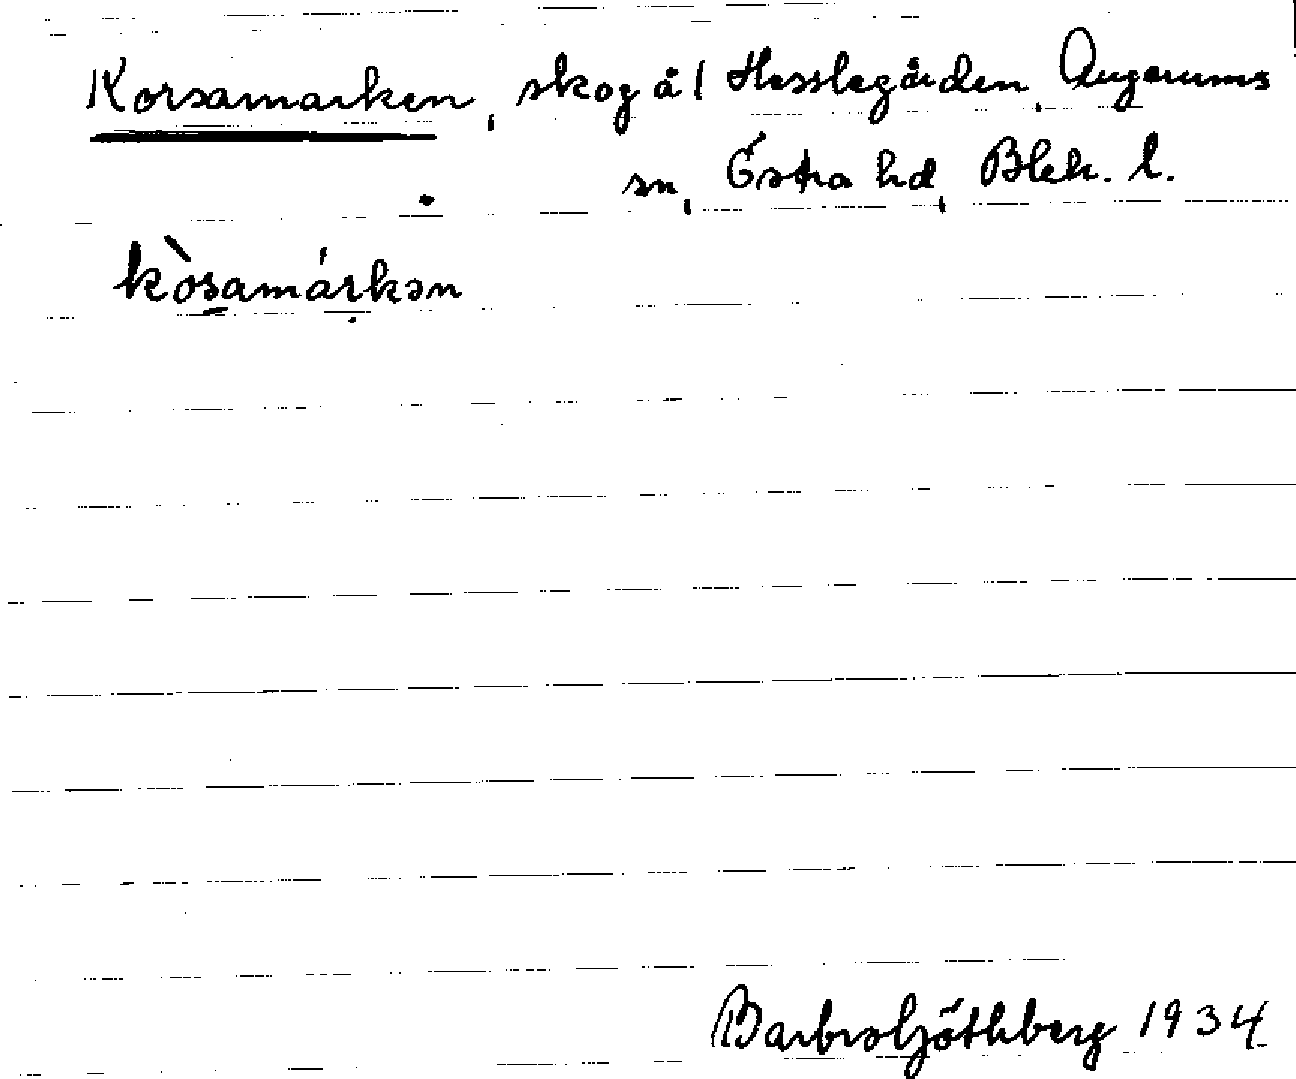 Korsamarken, skog å 1 Hesslegården, Augerums
sn, Östra hd, Blek. l.
kòsamárkən
Barbro Götlberg 1934